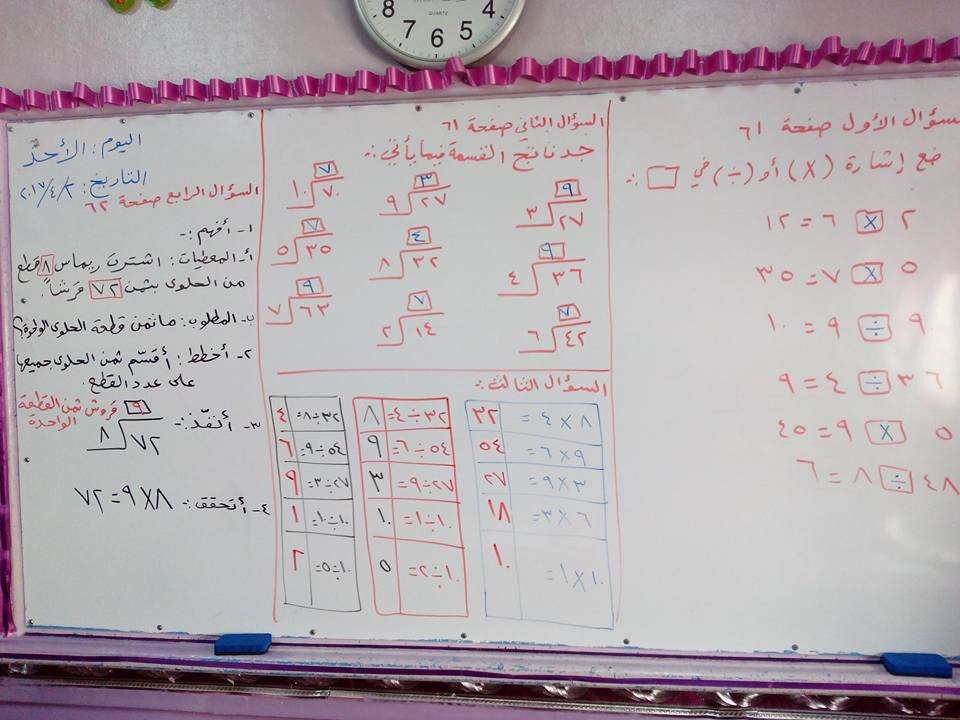 سؤال الأول صفحة ٦١
ضع إشارة (X) أو (÷) في □ :.
٢ X ٦ = ١٢
٥ X ٧ = ٣٥
٩٠ ÷ ٩ = ١٠
٣٦ ÷ ٤ = ٩
٥ X ٩ = ٤٥
٤٨ ÷ ٨ = ٦
السؤال الثاني صفحة ٦١
جد ناتج القسمة فيما يأتي :.
٩ ٣ ٧
٣ ٢٧ ٩ ٢٧ ١٠ ٧٠
٩ ٤ ٧
٤ ٣٦ ٨ ٣٢ ٥ ٣٥
٧ ٧ ٩
٦ ٤٢ ٢ ١٤ ٧ ٦٣
السؤال الثالث :.
٨ X ٤ = ٣٢ ٣٢ ÷ ٤ = ٨ ٣٢ ÷ ٨ = ٤
٩ X ٦ = ٥٤ ٥٤ ÷ ٦ = ٩ ٥٤ ÷ ٩ = ٦
٣ X ٩ = ٢٧ ٢٧ ÷ ٩ = ٣ ٢٧ ÷ ٣ = ٩
٦ X ٣ = ١٨ ١٠ ÷ ١ = ١٠ ١٠ ÷ ١٠ = ١
١٠ X ١ = ١٠ ١٠ ÷ ٢ = ٥ ١٠ ÷ ٥ = ٢
اليوم : الأحد
التاريخ : ٢٠١٧/٤/٢
السؤال الرابع صفحة ٦٢
١- أفهم :-
أ- المعطيات : اشترت ريماس ٨ قطع
من الحلوى بثمن ٧٢ قرشاً.
ب- المطلوب : ما ثمن قطعة الحلوى الواحدة؟
٢- أخطط : أقسّم ثمن الحلوى جميعها
على عدد القطع.
٣- أنفّذ :- ٩ قروش ثمن القطعة
الواحدة
٨ ٧٢
٤- أتحقق :- ٨ X ٩ = ٧٢
8 7 6 5 4
QUARTZ